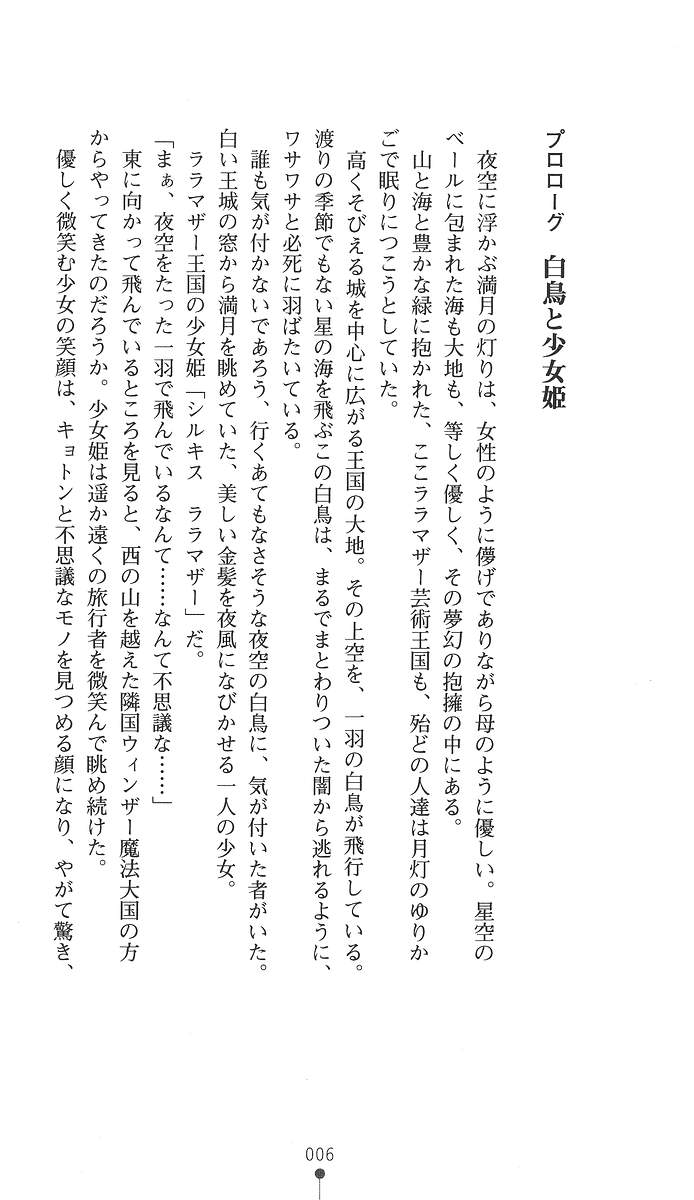 プロローグ　白鳥と少女姫
　夜空に浮かぶ満月の灯りは、女性のように儚げでありながら母のように優しい。星空の
ベールに包まれた海も大地も、等しく優しく、その夢幻の抱擁の中にある。
　山と海と豊かな緑に抱かれた、ここララマザー芸術王国も、殆どの人達は月灯のゆりか
ごで眠りにつこうとしていた。
　高くそびえる城を中心に広がる王国の大地。その上空を、一羽の白鳥が飛行している。
渡りの季節でもない星の海を飛ぶこの白鳥は、まるでまとわりついた闇から逃れるように、
ワサワサと必死に羽ばたいている。
　誰も気が付かないであろう、行くあてもなさそうな夜空の白鳥に、気が付いた者がいた。
白い王城の窓から満月を眺めていた、美しい金髪を夜風になびかせる一人の少女。
　ララマザー王国の少女姫「シルキス　ララマザー」だ。
「まぁ、夜空をたった一羽で飛んでいるなんて……なんて不思議な……」
　東に向かって飛んでいるところを見ると、西の山を越えた隣国ウィンザー魔法大国の方
からやってきたのだろうか。少女姫は遥か遠くの旅行者を微笑んで眺め続けた。
　優しく微笑む少女の笑顔は、キョトンと不思議なモノを見つめる顔になり、やがて驚き、
006